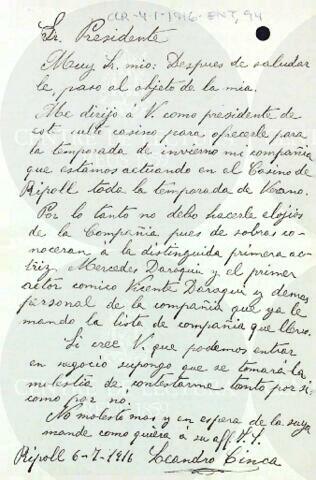 CLR-4-1-1916-ENT, 94
Sr. Presidente
Muy Sr. mio: Despues de saludar
le, paso al objeto de la mia.
Me dirijo á V. como presidente de
est culto casino para ofrecerle para
la temporada de invierno mi compañia
que estamos actuando en el Casino de
Ripoll toda la temporada de Verano.
Por lo tanto no debo hacerle elojios
de la Compañia pues de sobras co-
noceran à la distinguida primera ac-
triz, Mercedes Daroqui y el primer
actor comico Vicente Daroqui y demas
personal de la compañia que ya le
mando la lista de compañia que llevo.
Si cree V. que podemos entrar
en negocio supongo que se tomará la
molestia de contestarme tanto por si
como por no.
No molesto mas y en espera de la suya
mande como quiera á su aff. S. S.
Ripoll 6-7-1916 Leandro Cinca